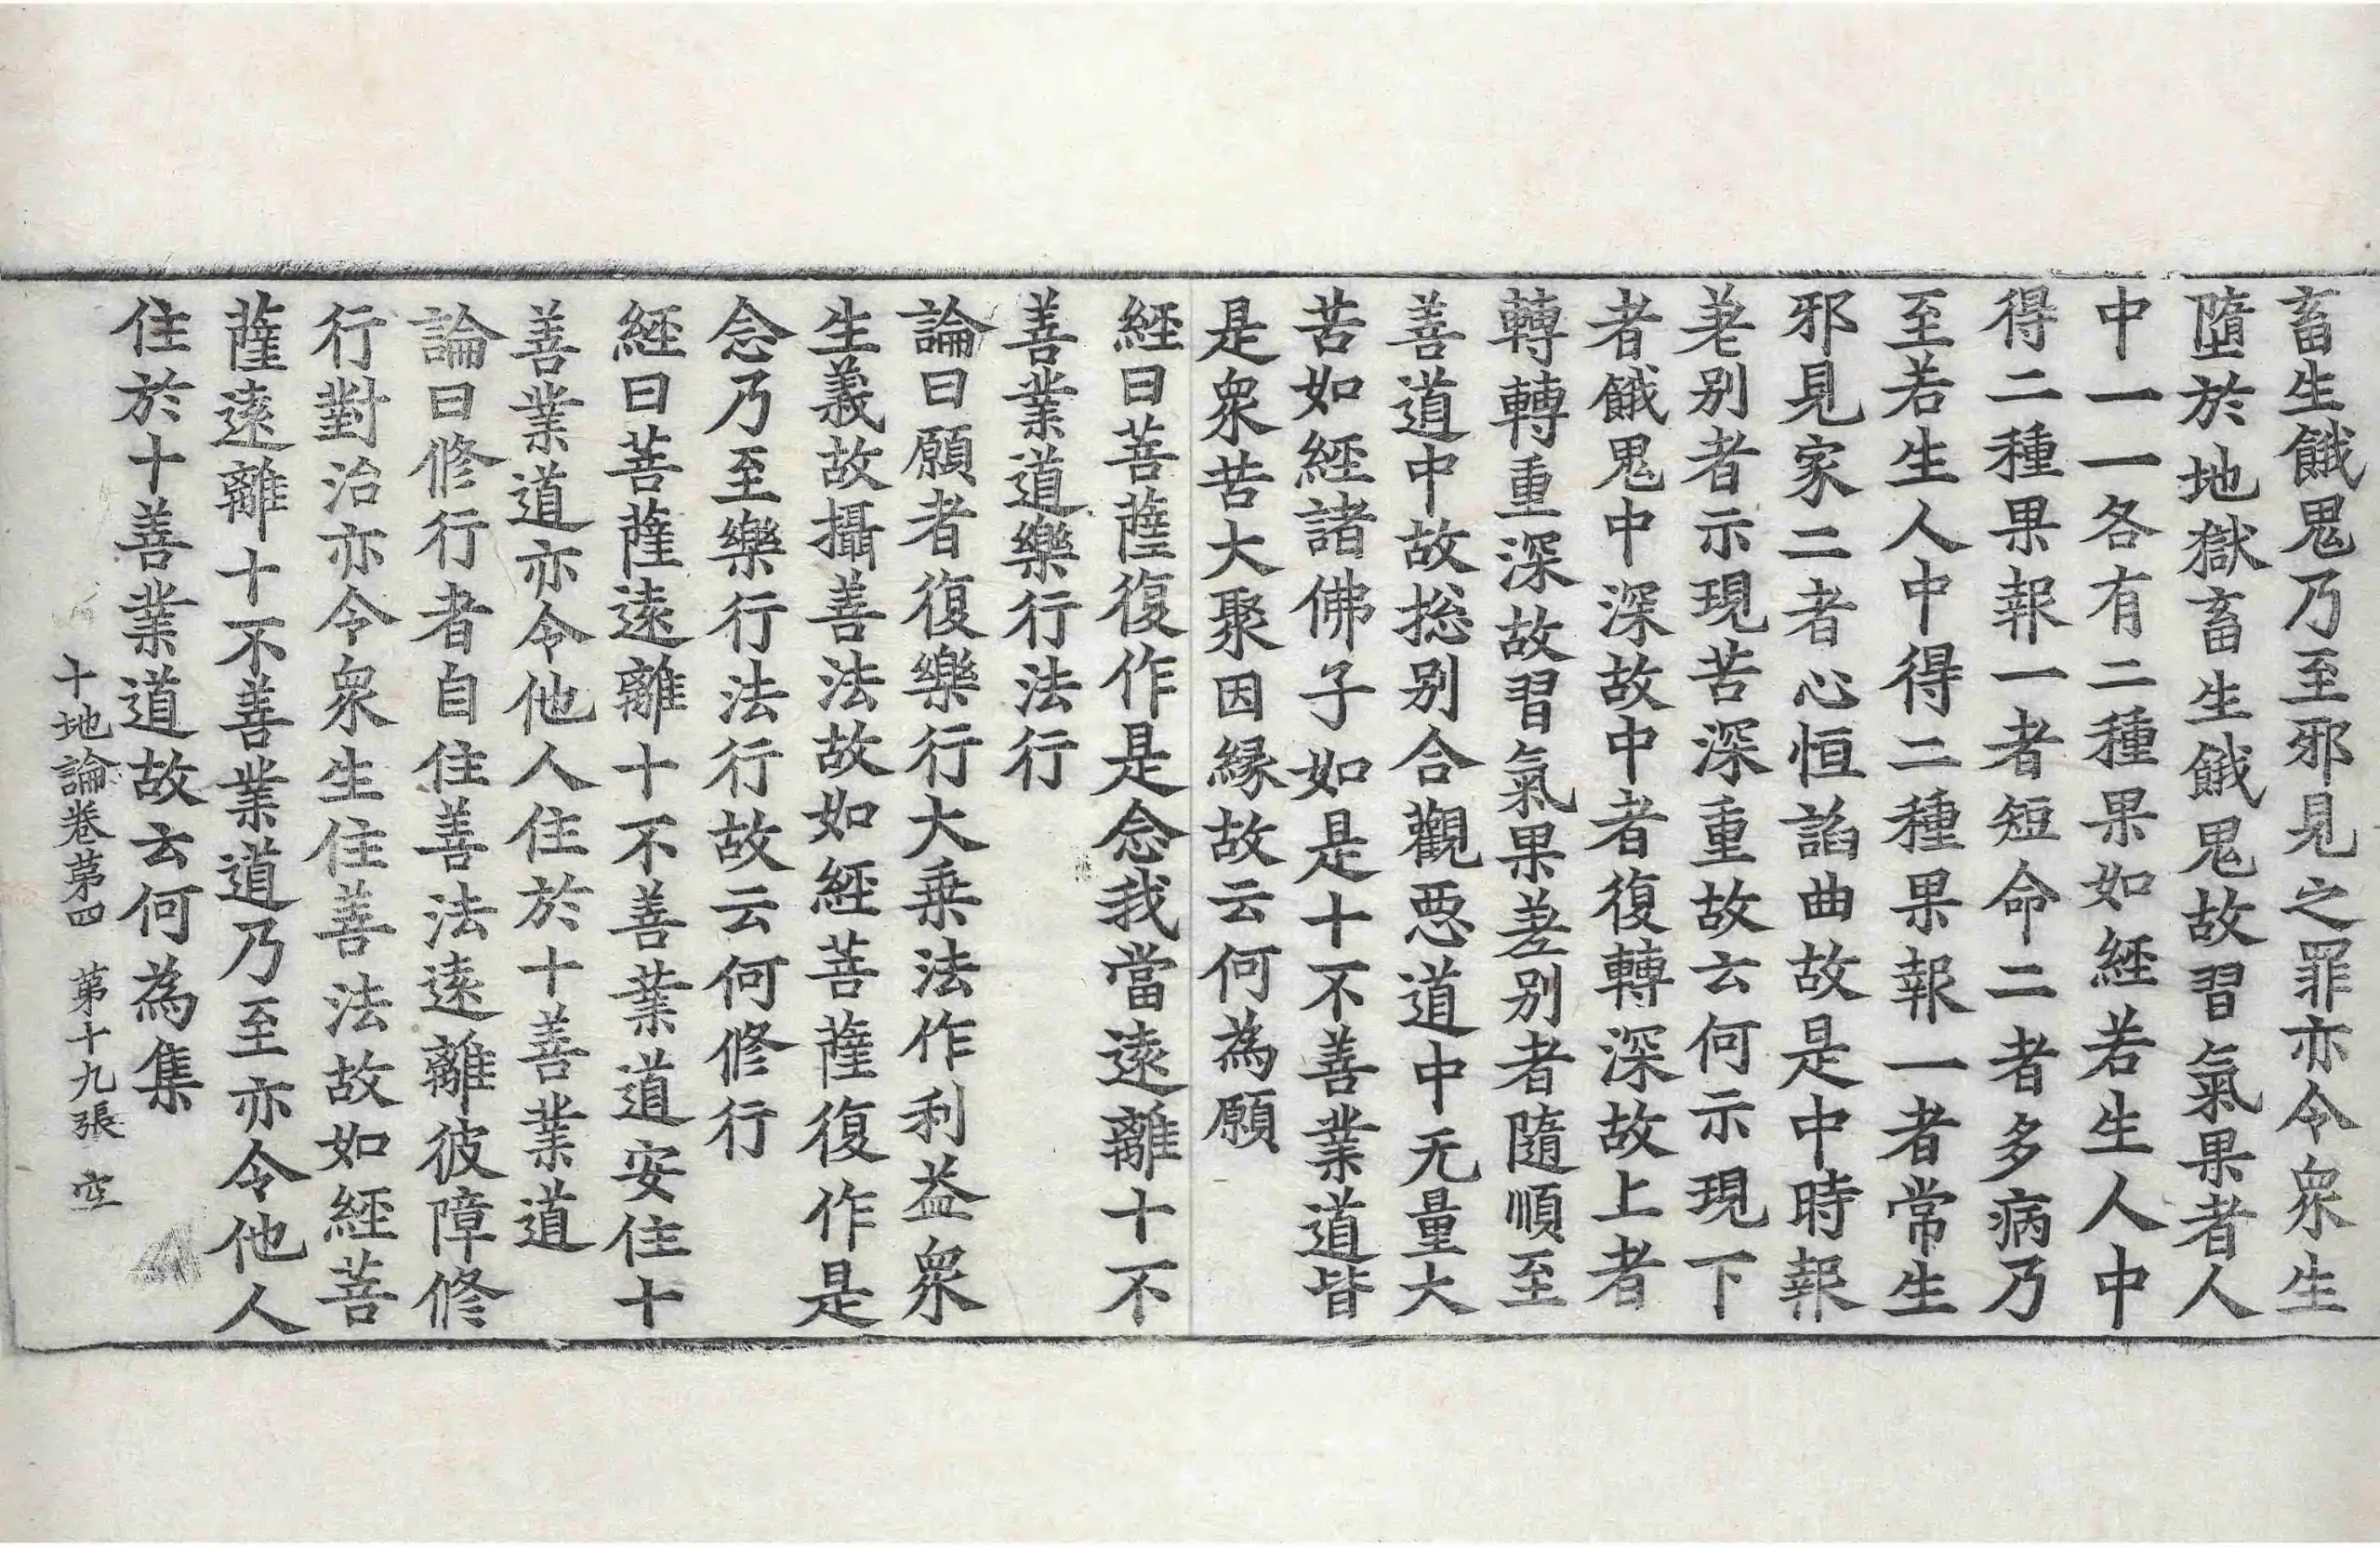 畜生餓鬼乃至邪見之罪亦令衆生
墮於地獄畜生餓鬼故習氣果者人
中一一各有二種果如經若生人中
得二種果報一者短命二者多病乃
至若生人中得二種果報一者常生
邪見家二者心恒諂曲故是中時報
差别者示現苦深重故云何示現下
者餓鬼中深故中者復轉深故上者
轉轉重深故習氣果差别者隨順至
善道中故捴别合觀惡道中无量大
苦如經諸佛子如是十不善業道皆
是衆苦大聚因縁故云何為願
經曰菩薩復作是念我當遠離十不
善業道樂行法行
論曰願者復樂行大乗法作利益衆
生義故攝善法故如經菩薩復作是
念乃至樂行法行故云何修行
經曰菩薩遠離十不善業道安住十
善業道亦令他人住於十善業道
論曰修行者自住善法遠離彼障修
行對治亦令衆生住善法故如經菩
薩遠離十不善業道乃至亦令他人
住於十善業道故云何為集
十地論卷第四 第十九張 空